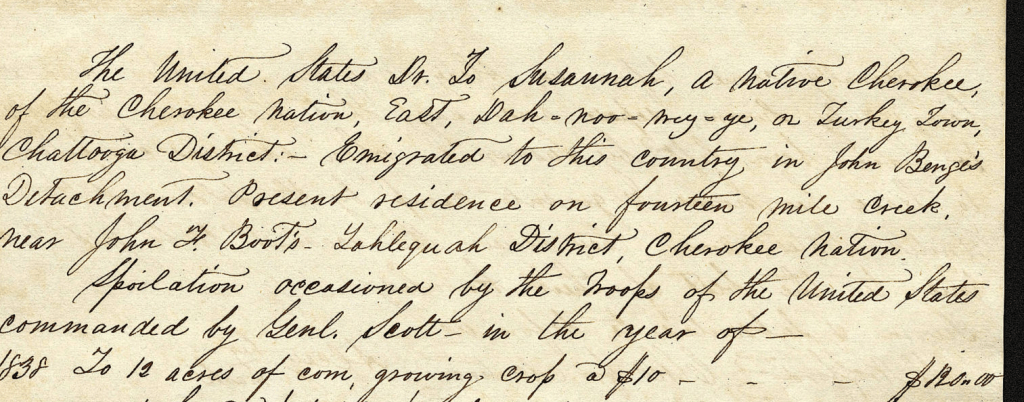 The United States Dr. To Susannah, a native Cherokee,
of the Cherokee nation, East, Dah-noo-wey-ye, or Turkey Town,
Chattooga District:- Emigrated to this country in John Benge's
Detachment. Present residence on fourteen mile creek,
near John F. Boot's- Tahlequah District, Cherokee nation.
Spoilation occasioned by the Troops of the United States
commanded by Genl. Scott- in the year of-
1838 To 12 acres of corn, growing crop a $10 - - - - $120.00